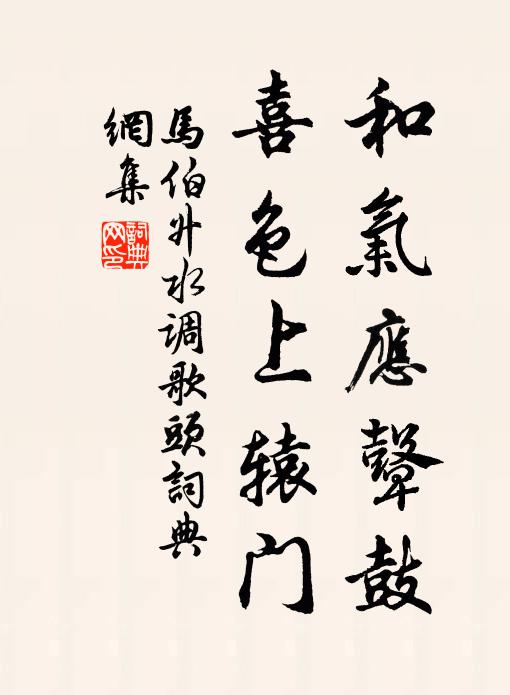 和氣應鼙鼓
喜色上辕门
馬伯升水调歌頭詞典
網集
詞典网印